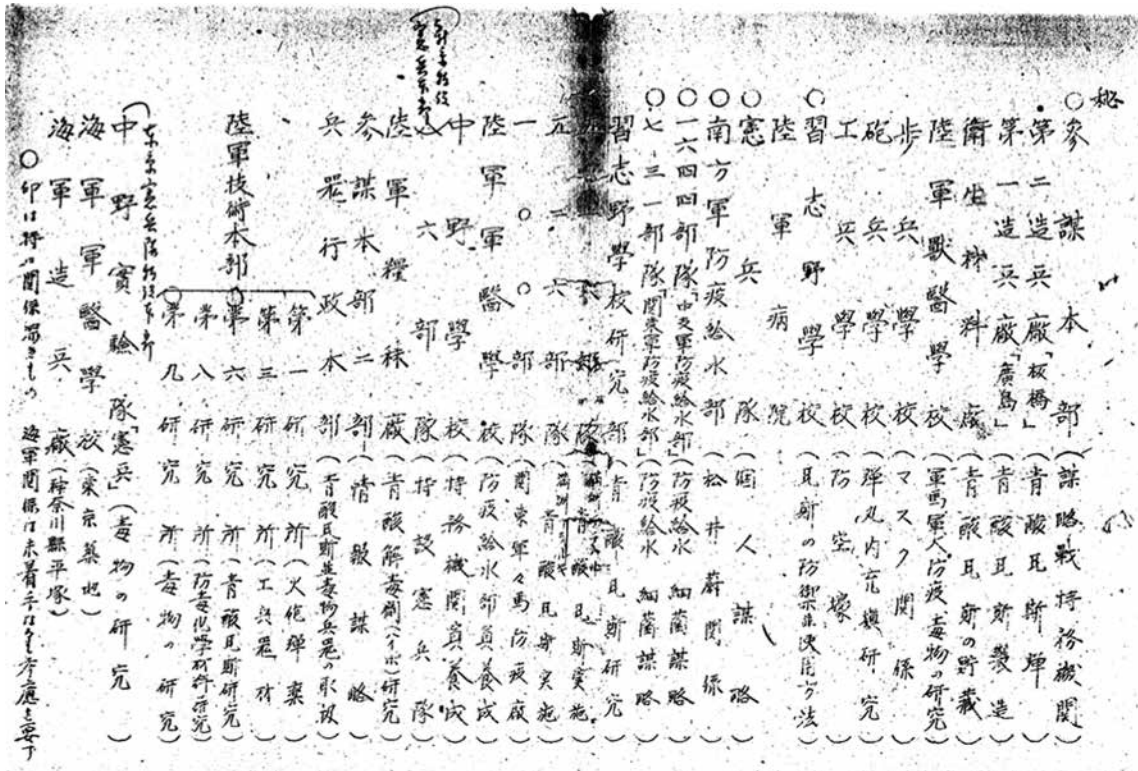 秘
○參謀本部(謀略戰特務機関)
第二造兵廠「板橋」(青酸瓦斯弾)
第一造兵廠「廣島」(青酸瓦斯製造)
衛生材料廠(青酸瓦斯の貯蔵)
陸軍獸醫學校(軍馬軍犬防疫毒物の研究)
歩兵學校(マスク関係)
砲兵學校(弾丸内充填研究)
工兵學校(防空壕)
○習志野學校(瓦斯の防禦並使用方法)
陸軍病院
○憲兵隊(個人謀略)
○南方軍防疫給水部(松井蔚関係)
○一六四四部隊「中支軍防疫給水部」(防疫給水 細菌謀略)
○七三一部隊「関東軍防疫給水部」(防疫給水 細菌謀略)
習志野學校研究部(青酸瓦斯研究)
部隊(青酸瓦斯実施)
二六部隊(満洲青酸瓦斯実施)
一〇〇部隊(関東軍々馬防疫廠)
陸軍軍醫學校(防疫給水部員養成)
中野學校(特務機関員養成)
六部隊(特設憲兵隊)
憲兵本部
陸軍糧秣廠(青酸解毒剤(ハイポ)研究)
参謀本部二部(情報謀略)
兵器行政本部(青酸瓦斯並毒物兵器の取扱)
陸軍技術本部
第一研究所(火砲弾薬)
第三研究所(工兵器材)
○第六研究所(青酸瓦斯研究)
第八研究所(防毒化学材料研究)
○第九研究所(毒物の研究)
東京憲兵隊
中野實驗隊「憲兵」(毒物の研究)
海軍軍醫學校(東京築地)
海軍造兵廠(神奈川縣平塚)
○印は特に関係濃きもの 海軍関係は未着手にて考慮を要す